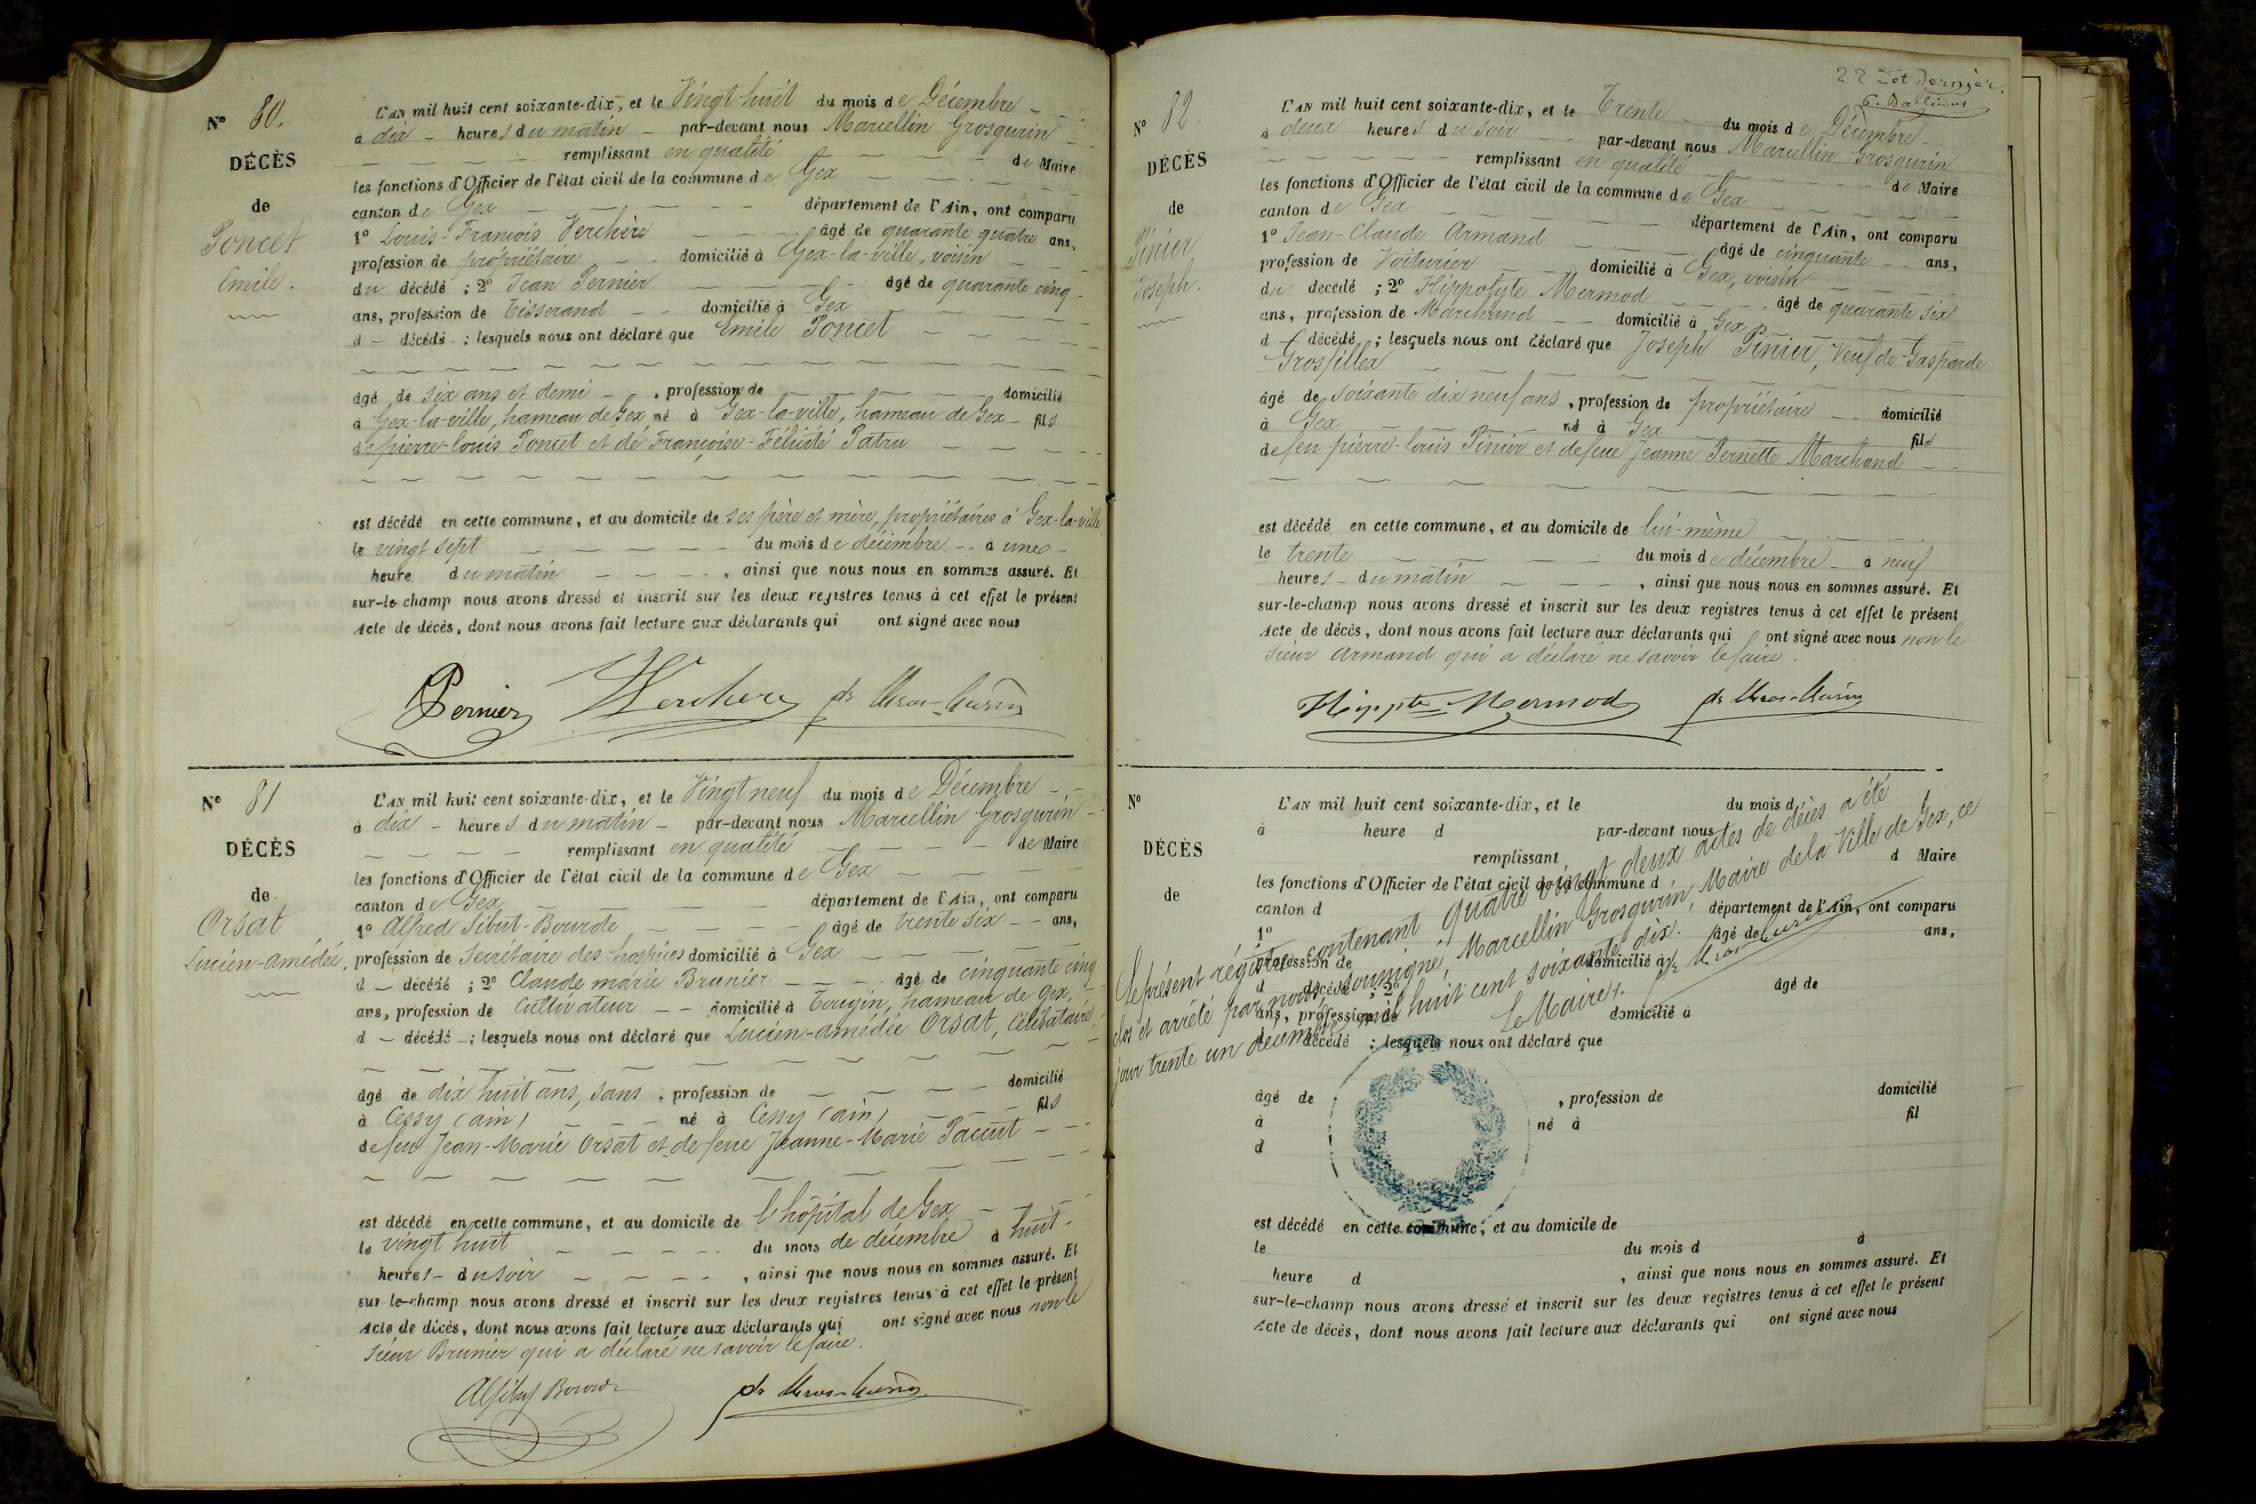 N° 80.
DÉCÈS
de
Poncet
Emile.
L'AN mil huit cent soixante-dix, et le Vingt-huit du mois de Décembre
à dix heures du matin par-devant nous Marcellin Grosgurin
remplissant en qualité de Maire
les fonctions d'Officier de l'état civil de la commune de Gex
canton de Gex département de l'Ain, ont comparu
1° Louis-François Verchère âgé de quarante quatre ans,
profession de propriétaire domicilié à Gex-la-ville, voisin
du décédé ; 2° Jean Pernier âgé de quarante cinq
ans, profession de Tisserand domicilié à Gex
d décédé ; lesquels nous ont déclaré que Emile Poncet
âgé de six ans et demi, profession de domicilié
à Gex-la-ville, hameau de Gex né à Gex-la-ville, hameau de Gex fils
de pierre-louis Poncet et de Françoise-Félicité Patru
est décédé en cette commune, et au domicile de ses père et mère, propriétaires à Gex-la-ville
le vingt sept du mois de décembre à une
heure du matin, ainsi que nous nous en sommes assuré. Et
sur-le-champ nous avons dressé et inscrit sur les deux registres tenus à cet effet le présent
Acte de décès, dont nous avons fait lecture aux déclarants qui ont signé avec nous
Pernier Verchere
N° 81
DÉCÈS
de
Orsat
Lucien-amédée.
L'AN mil huit cent soixante-dix, et le Vingt neuf du mois de Décembre
à dix heures du matin par-devant nous Marcellin Grosgurin
remplissant en qualité de Maire
les fonctions d'Officier de l'état civil de la commune de Gex
canton de Gex département de l'Ain, ont comparu
1° Alfred Sibut-Bourde âgé de trente six ans,
profession de Secrétaire des hospices domicilié à Gex
d décédé ; 2° Claude marie Brunier âgé de cinquante cinq
ans, profession de Cultivateur domicilié à Tougin, hameau de Gex,
d décédé ; lesquels nous ont déclaré que Lucien-amédée Orsat, Célibataire,
âgé de dix huit ans, sans, profession de domicilié
à Cessy (ain) né à Cessy (ain) fils
de feu Jean-Marie Orsat et de feue Jeanne-Marie Paccut
est décédé en cette commune, et au domicile de l'hôpital de Gex
le vingt huit du mois de décembre à huit
heures du soir, ainsi que nous nous en sommes assuré. Et
sur-le-champ nous avons dressé et inscrit sur les deux registres tenus à cet effet le présent
Acte de décès, dont nous avons fait lecture aux déclarants qui ont signé avec nous non le
sieur Brunier qui a déclaré ne savoir le faire.
22 et dernier.
N° 82.
DÉCÈS
de
Pinier
Joseph.
L'AN mil huit cent soixante-dix, et le Trente du mois de Décembre
à deux heures du soir par-devant nous Marcellin Grosgurin
remplissant en qualité de Maire
les fonctions d'Officier de l'état civil de la commune de Gex
canton de Gex département de l'Ain, ont comparu
1° Jean-Claude Armand âgé de cinquante ans,
profession de Voiturier domicilié à Gex, voisin
du décédé ; 2° Hippolyte Mermod âgé de quarante six
ans, profession de Marchand domicilié à Gex
d décédé ; lesquels nous ont déclaré que Joseph Pinier, Veuf de Gasparde
Grosfillex
âgé de soixante dix neuf ans, profession de propriétaire domicilié
à Gex né à Gex fils
de feu pierre-louis Pinier et de feue Jeanne Pernette Marchand
est décédé en cette commune, et au domicile de lui-même
le trente du mois de décembre à neuf
heures du matin, ainsi que nous nous en sommes assuré. Et
sur-le-champ nous avons dressé et inscrit sur les deux registres tenus à cet effet le présent
Acte de décès, dont nous avons fait lecture aux déclarants qui ont signé avec nous non le
sieur Armand qui a déclaré ne savoir le faire.
Hippte Mermod
N°
DÉCÈS
de
L'AN mil huit cent soixante-dix, et le du mois d
à heure d par-devant nous
remplissant d Maire
les fonctions d'Officier de l'état civil de la commune d
canton d département de l'Ain, ont comparu
1° âgé de ans,
profession de domicilié à
d décédé ; 2° âgé de
ans, profession de domicilié à
d décédé ; lesquels nous ont déclaré que
Le présent régistre contenant quatre vingt deux actes de décès a été
clos et arrêté par nous soussigné, Marcellin Grosgurin, Maire de la Ville de Gex, ce
jour trente un décembre mil huit cent soixante dix.
Le Maire,
âgé de , profession de domicilié
à né à fil
d
est décédé en cette commune, et au domicile de
le du mois d à
heure d , ainsi que nous nous en sommes assuré. Et
sur-le-champ nous avons dressé et inscrit sur les deux registres tenus à cet effet le présent
Acte de décès, dont nous avons fait lecture aux déclarants qui ont signé avec nous